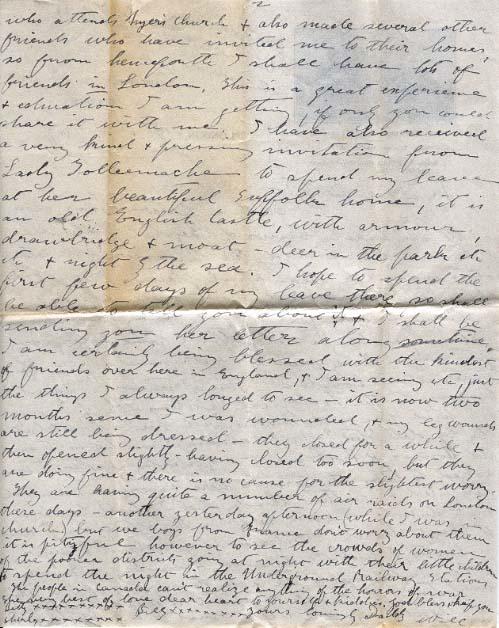 2
who attends Byer's church & also made several other
friends who have invited me to their homes,
so from henceforth I shall have lots of
friends in London. This is a great experience
& education I am getting, if only you could
share it with me. I have also received
a very kind & pressing invitation from
Lady Tollemache to spend my leave
at her beautiful Suffolk home, it is
an old English castle, with armour,
drawbridge & moat - deer in the park etc
etc & right by the sea. I hope to spend the
first few days of my leave there so shall
be able to tell you about it & I shall be
sending you her letter along sometime.
I am certainly being blessed with the kindest
of friends over here in England, & I am seeing etc, just
the things I always longed to see - it is now two
months since I was wounded, & my leg wounds
are still being dressed - they closed for a while &
then opened slightly - having closed too soon, but they
are doing fine & there is no cause for the slightest worry
They are having quite a number of air raids on London
these days - another yesterday afternoon (while I was in
church) but we boys from France don't worry about them
it is pityful however to see the crowds of women
of the poorer districts going at night with their little children
to spend the night in the Underground Railway Stations
The people in Canada can't realize anything of the horrors of war
best of love dear heart to yourself & kiddies, God bless & keep you
Betty xxxxxxxxx yours lovingly Will
Shirley xxxxxxxxx